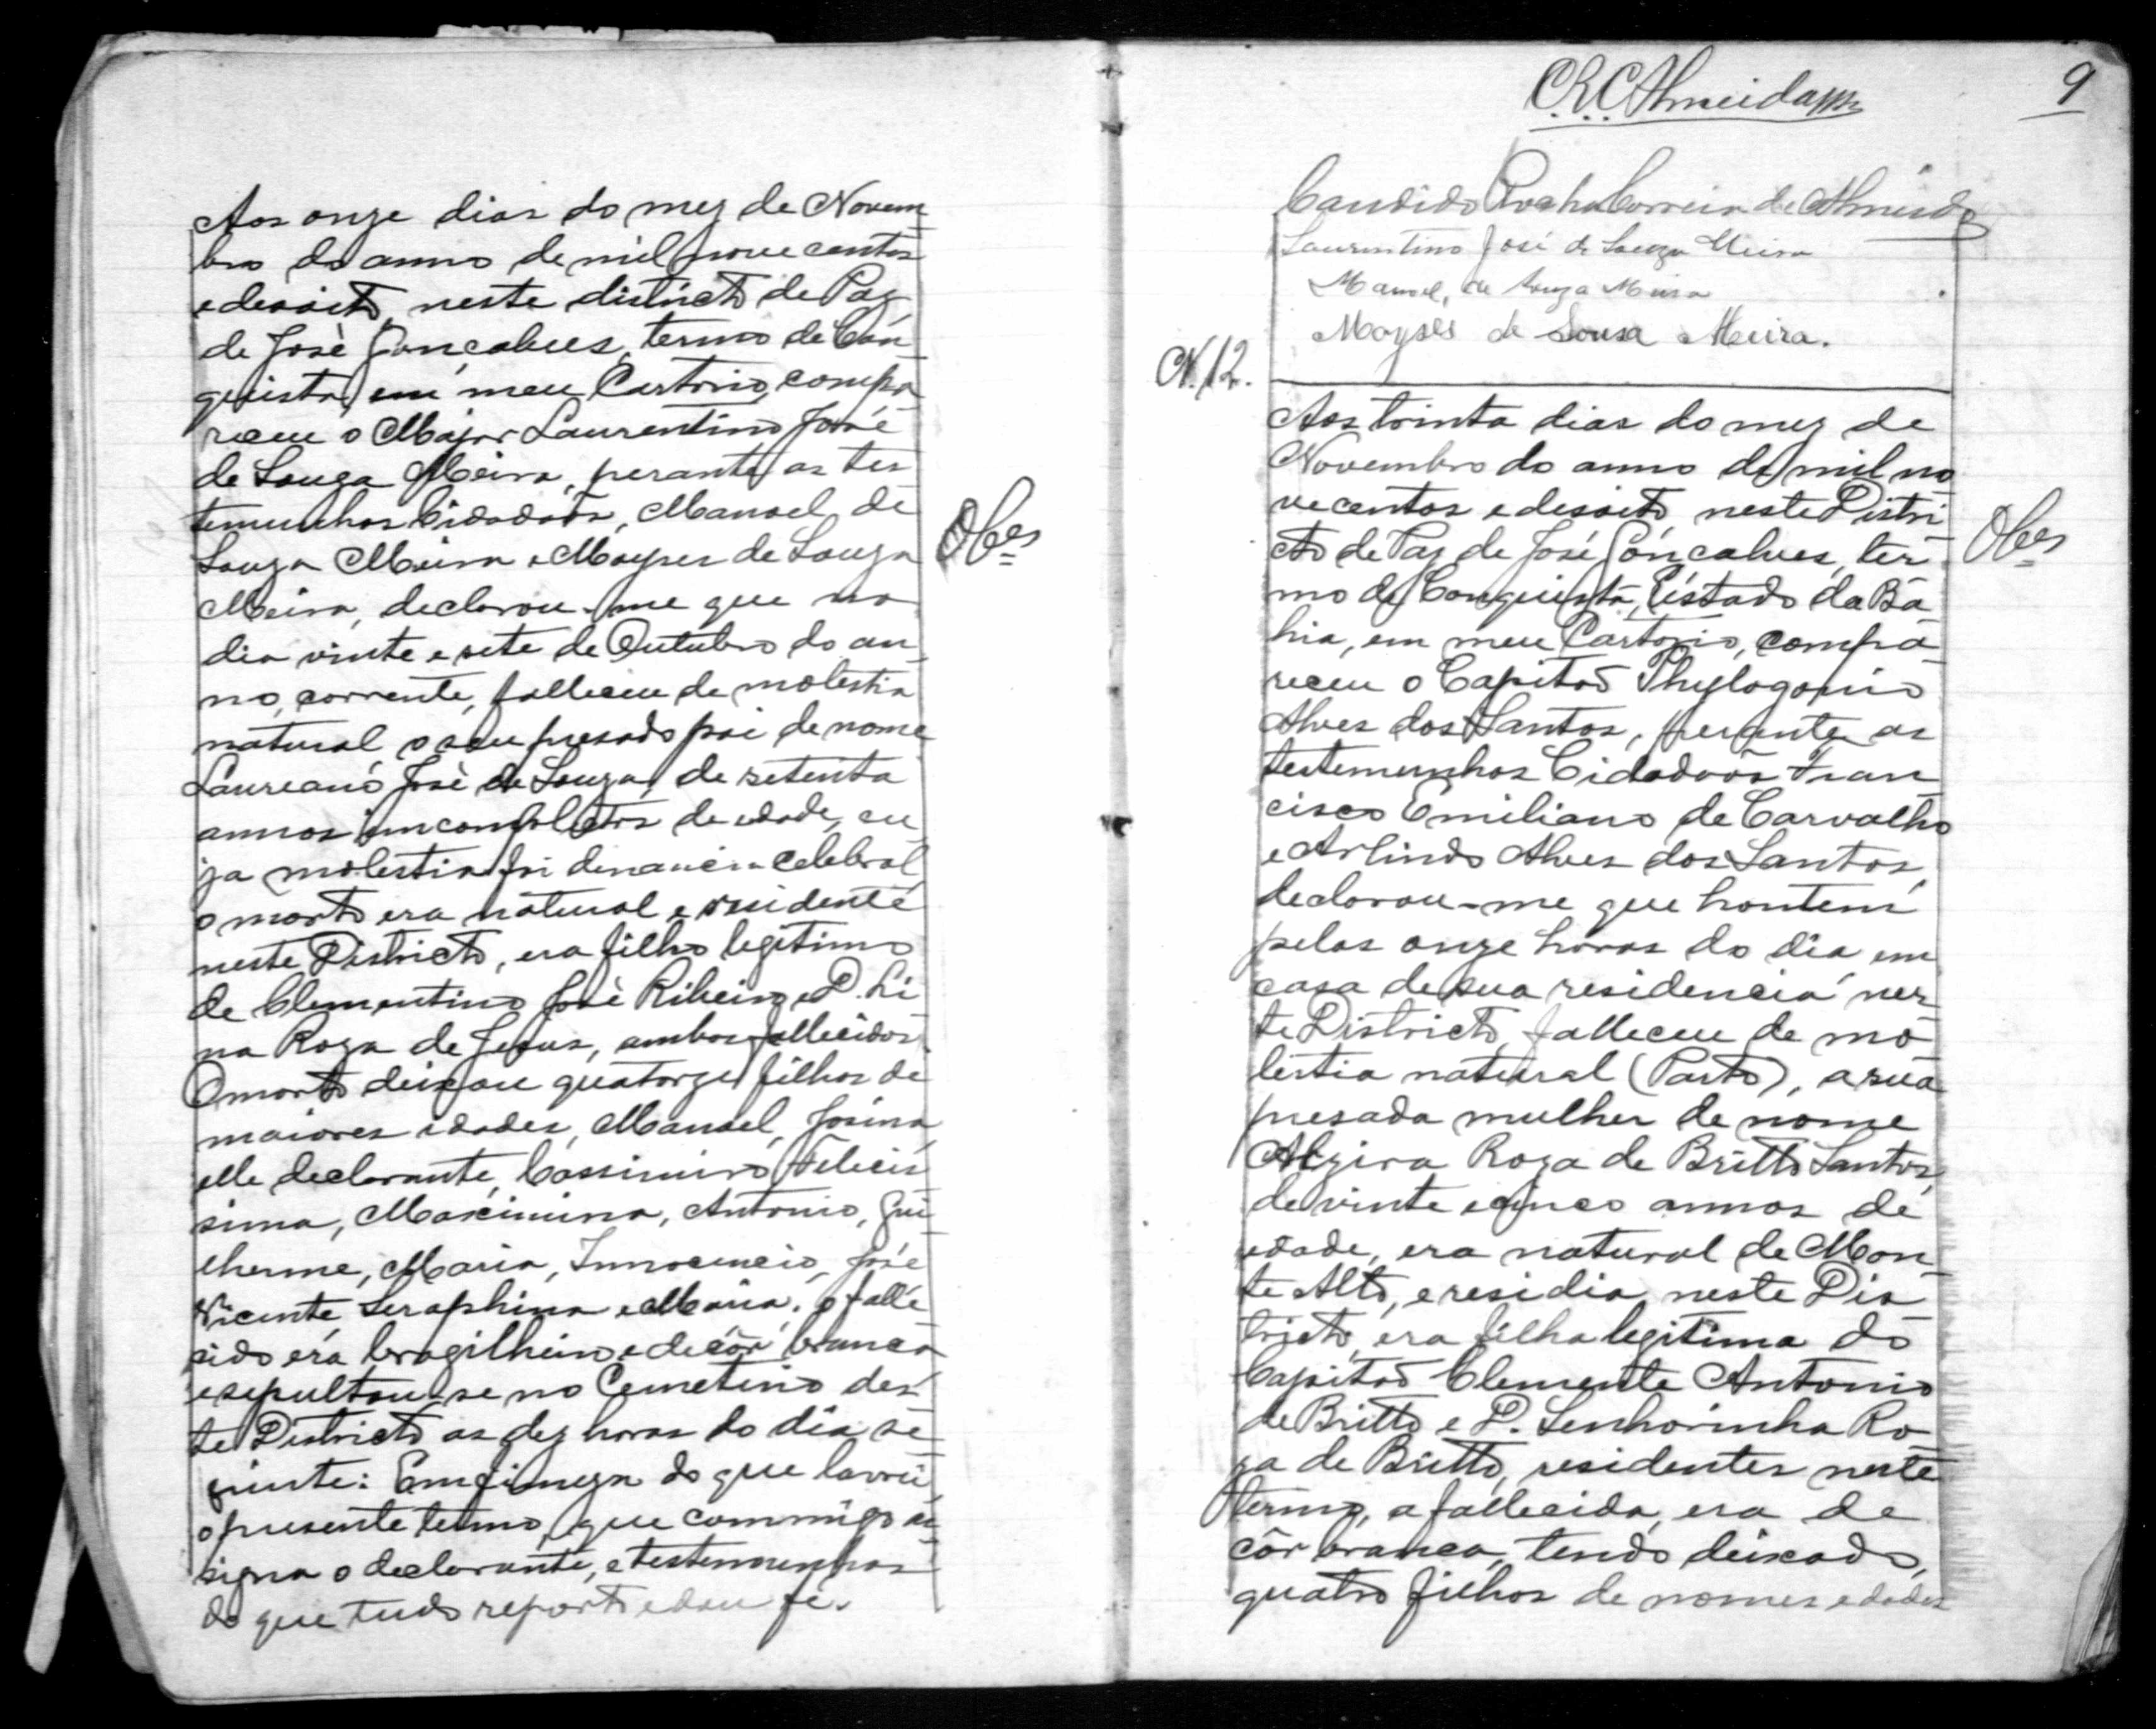 Aos onze dias do mez de Novem
bro do anno de mil novecentos
e desoito, neste districto de Paz
de José Gonçalves, termo de Con
quista, em meu Cartorio, compa
receu o Major Laurentino José
de Souza Meira, perante as tes
temunhas Cidadaõs, Manoel de
Souza Meira e Moyses de Souza
Meira, declarou-me que no
dia vinte e sete de Outubro do an
no, corrente, falleceu de molestia
natural, o seu presado pai de nome
Laureano José de Souza, de setenta
annos imcompletos de edade, cu
ja molestia foi celebral,
o morto era natural e residente
neste Districto, era filho legitimo
de Clementino José Ribeiro e D. Li
na Roza de Jesus, ambos fallecidos.
O morto deixou quatorze filhos de
maiores idades, Manoel, Josina,
elle declarante, Cassimiro, Felicis
sima, Maximina, Antonio, Gui
lherme, Maria, Innocencio, José
Vicente, Seraphina e Maria. o falle
sido era brazilheiro e de côr branca
e sepultou-se no Cemeterio des
te Districto as dez horas do dia se
guinte: Em fimeza do que lavrei
o presente termo, que commigo as
signa o declarante, e testemunhas
do que tudo reporto e dou fé.
Obes
C.R.C. Almeida
9
Candido Rocha Correia de Almeida
Laurentino José de Souza Meira
Manoel, de Souza Meira
Moysés de Sousa Meira.
N. 12.
Aos trinta dias do mez de
Novembro do anno de mil no
vecentos e desoito, neste Distri
cto de Paz de José Gonçalves, ter
mo de Conquista, Estado da Ba
hia, em meu Cartorio, compa
receu o Capitaõ Phylogonio
Alves dos Santos, perante as
testemunhas Cidadaõs Fran
cisco Emiliano de Carvalho
e Arlindo Alves dos Santos,
declarou-me que hontem
pelas onze horas do dia em
casa de sua residencia nes
te Districto, falleceu de mo
lestia natural (Parto), a sua
presada mulher de nome
Alzira Roza de Britto Santos,
de vinte e cinco annos de
edade, era natural de Mon
te Alto, e residia neste Dis
tricto, era filha legitima do
Capitaõ Clemente Antonio
de Britto e D. Senhorinha Ro
za de Britto, residentes neste
termo, a fallecida, era de
côr branca, tendo deixado,
quatro filhos de nomes e edades
Obes